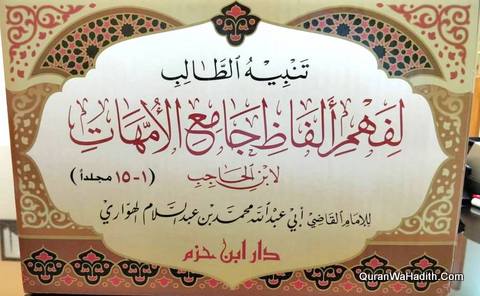 تنبيه الطالب
لفهم ألفاظ جامع الأمهات
لابن الحاجب
(١-١٥ مجلداً)
للإمام القاضي أبي عبد الله محمد بن عبد السلام الهواري
دار ابن حزم
QuranWaHadith.Com